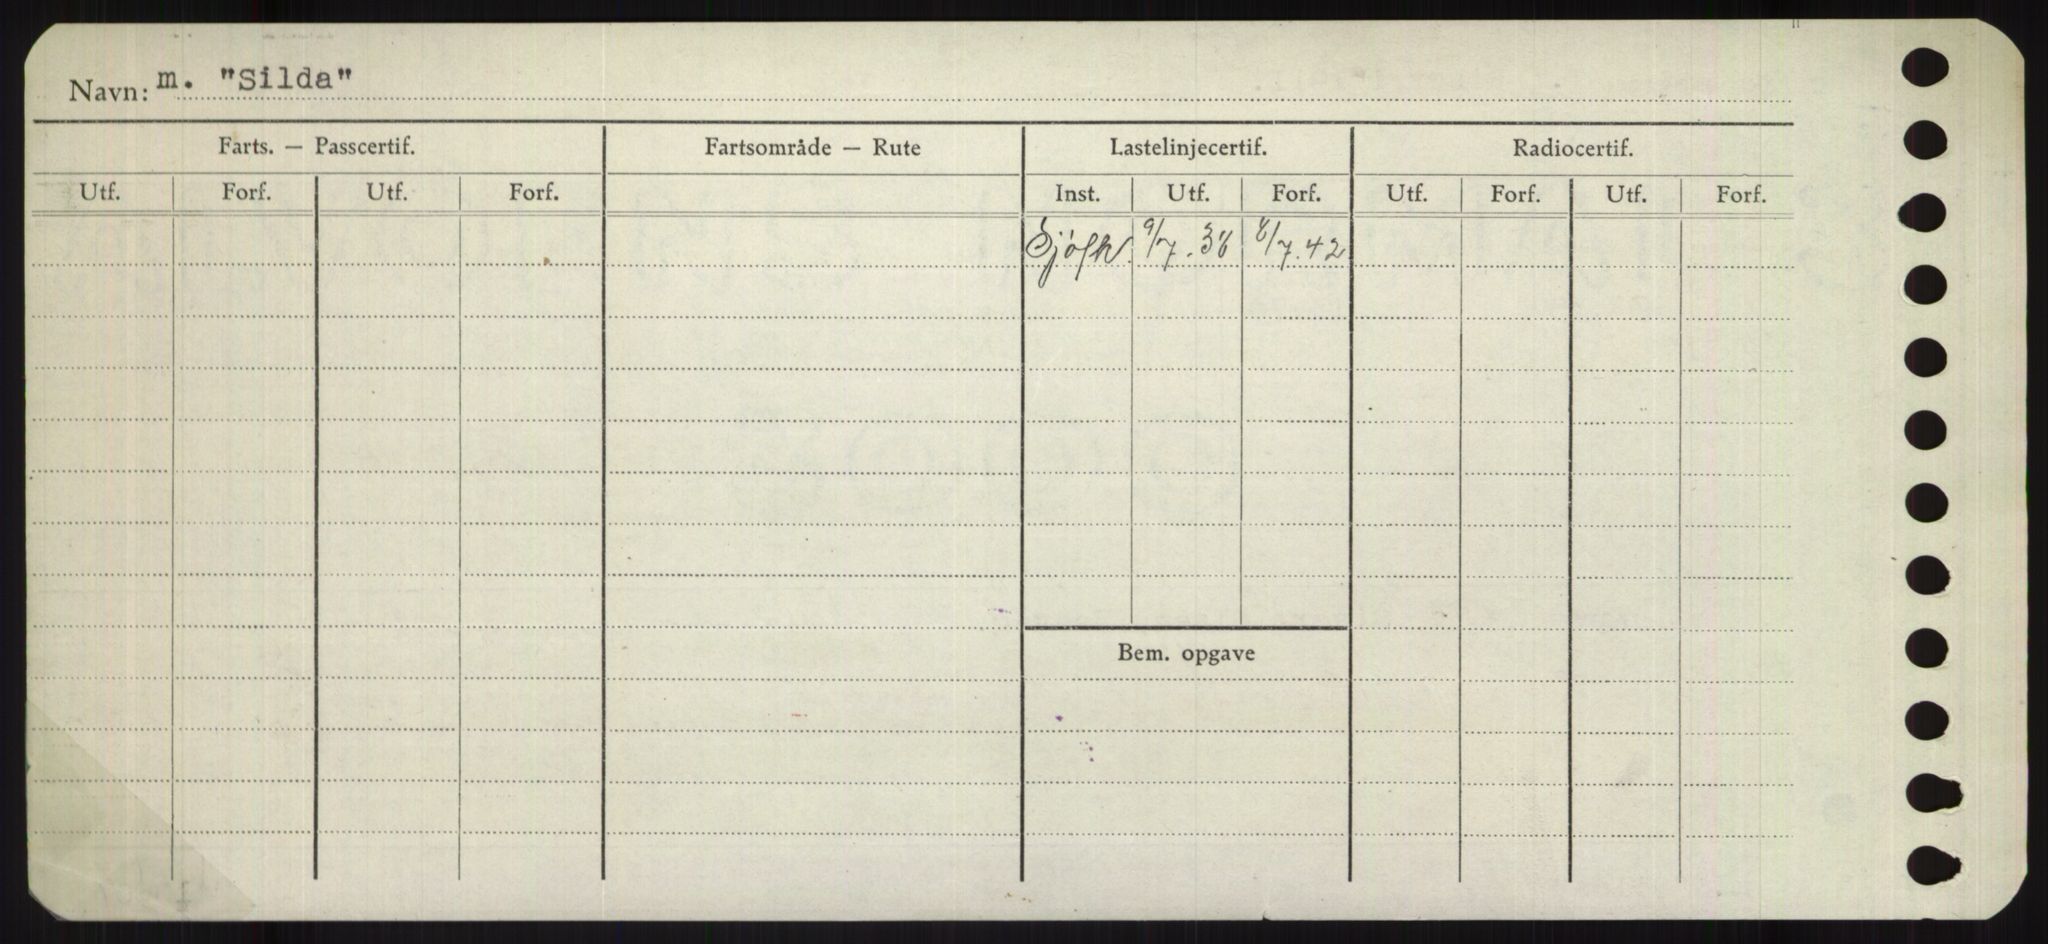 Navn: m. "Silda"
Farts. — Passcertif. Fartsområde — Rute Lastelinjecertif. Radiocertif.
Utf. Forf. Utf. Forf. Inst. Utf. Forf. Utf. Forf. Utf. Forf.
Sjöfk. 9/7.38 8/7.42
Bem. opgave